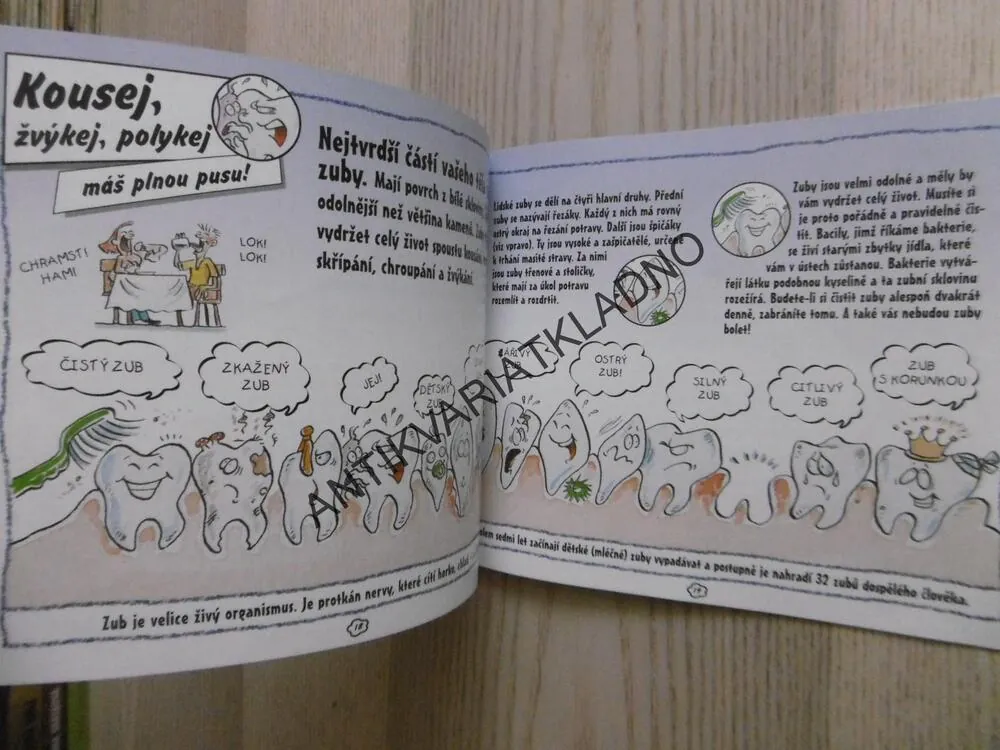 Kousej,
žvýkej, polykej
máš plnou pusu!
CHRAMST!
HAM!
LOK!
LOK!
Nejtvrdší částí vašeho těla
zuby. Mají povrch z bílé skloviny
odolnější než většina kamenů.
vydržet celý život spoustu kousání,
skřípání, chroupání a žvýkání.
ČISTÝ ZUB
ZKAŽENÝ
ZUB
JEJ!
DĚTSKÝ
ZUB
Zub je velice živý organismus. Je protkán nervy, které cítí horko,
18
Lidské zuby se dělí na čtyři hlavní druhy. Přední
zuby se nazývají řezáky. Každý z nich má rovný
ostrý okraj na řezání potravy. Další jsou špičáky
(viz vpravo). Ty jsou vysoké a zašpičatělé, určené
k trhání masité stravy. Za nimi
jsou zuby třenové a stoličky,
které mají za úkol potravu
rozemlít a rozdrtit.
Zuby jsou velmi odolné a měly by
vám vydržet celý život. Musíte si
je proto pořádně a pravidelně čis-
tit. Bacily, jimž říkáme bakterie,
se živí starými zbytky jídla, které
vám v ústech zůstanou. Bakterie vytvá-
řejí látku podobnou kyselině a ta zubní sklovinu
rozežírá. Budete-li si čistit zuby alespoň dvakrát
denně, zabráníte tomu. A také vás nebudou zuby
bolet!
ZUB
OSTRÝ
ZUB!
SILNÝ
ZUB
CITLIVÝ
ZUB
ZUB
S KORUNKOU
sedmi let začínají dětské (mléčné) zuby vypadávat a postupně je nahradí 32 zubů dospělého člověka.
19
ANTIKVARIATKLADNO